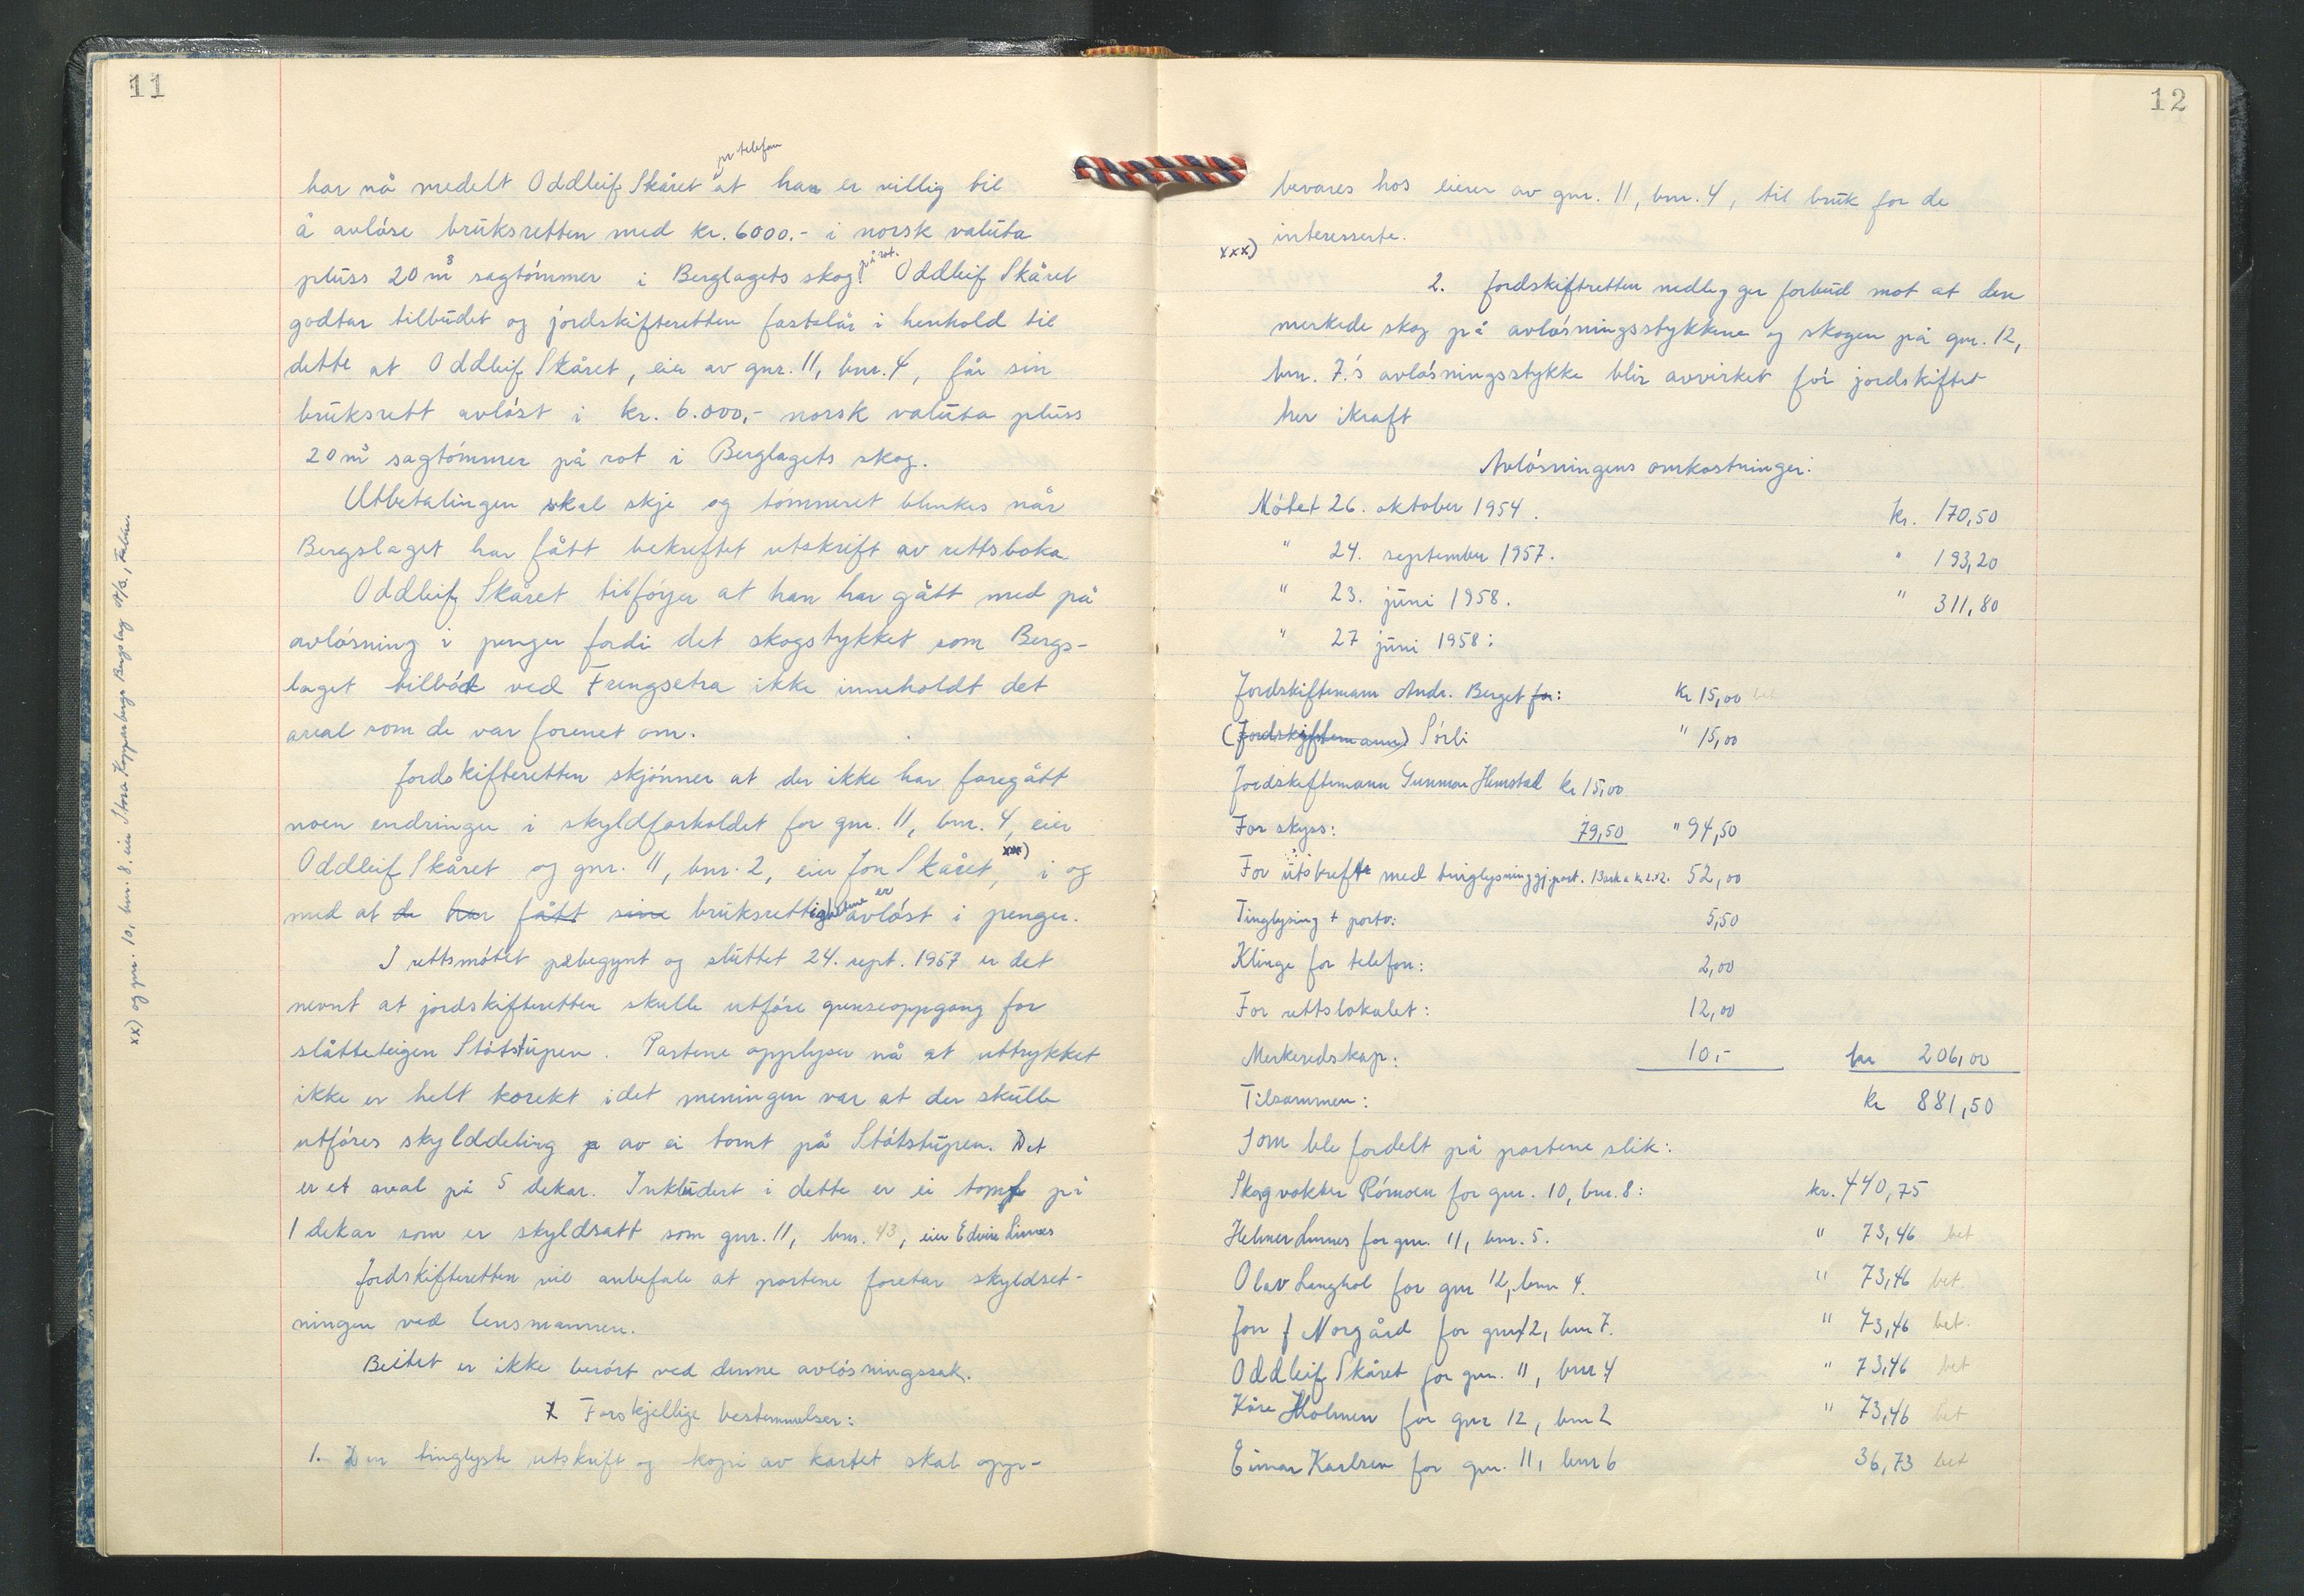 11
har nå medelt Oddleif Skåret pr telefon at han er villig til
å avløse bruksretten med kr. 6000.- i norsk valuta
pluss 20 m³ sagtømmer i Berglagets skog på rot. Oddleif Skåret
godtar tilbudet og jordskifteretten fastslår i henhold til
dette at Oddleif Skåret, eier av gnr. 11, bnr. 4, får sin
bruksrett avløst i kr. 6.000,- norsk valuta pluss
20 m³ sagtømmer på rot i Berglagets skog.
Utbetalingen skal skje og tømmeret blinkes når
Bergslaget har fått bekreftet utskrift av rettsboka
Oddleif Skåret tilføyer at han har gått med på
avløsning i penger fordi det skogstykket som Bergs-
laget tilbød ved Frengsetra ikke inneholdt det
areal som de var forenet om.
Jordskifteretten skjønner at der ikke har foregått
noen endringer i skyldforholdet for gnr. 11, bnr. 4, eier
Oddleif Skåret og gnr. 11, bnr. 2, eier Jon Skåret, xx) i og
med at de har fått sine bruksrettighetene er avløst i penger.
I rettsmøtet påbegynt og sluttet 24. sept. 1957 er det
nevnt at jordskifteretten skulle utføre grenseoppgang for
slåtteteigen Støtstupen. Partene opplyser nå at uttrykket
ikke er helt korekt idet meningen var at der skulle
utføres skylddeling av ei tomt på Støtstupen. Det
er et areal på 5 dekar. Inkludert i dette er ei tomt på
1 dekar som er skyldsatt som gnr. 11, bnr. 43, eier Edvin Linnes
Jordskifteretten vil anbefale at partene foretar skyldset-
ningen ved lensmannen.
Beitet er ikke berørt ved denne avløsningssak.
Forskjellige bestemmelser:
1. Den tinglyste utskrift og kopi av kartet skal opp-
xx) og gnr. 10, bnr. 8. eier Stora Kopparbergs Bergslag A/B., Falun.
12
bevares hos eieren av gnr. 11, bnr. 4, til bruk for de
interesserte.
xxx)
2. Jordskiftretten nedlegger forbud mot at den
merkede skog på avløsningsstykkene og skogen på gnr. 12,
bnr. 7.'s avløsningsstykke blir avvirket før jordskiftet
trer ikraft
Avløsningens omkostninger:
Møtet 26. oktober 1954. kr. 170,50
" 24. september 1957. " 193,20
" 23. juni 1958. " 311,80
" 27 juni 1958:
Jordskiftemann Andr. Berget for: kr 15,00 bet
(Jordskiftemann) Sørli " 15,00
Jordskiftemann Gunnar Hemstad kr 15,00
For skyss: 79,50 " 94,50
For utskrift med tinglysninggj.part. 13 ark a kr 2. 52,00
Tinglysing + porto: 5,50
Klinge for telefon: 2,00
For rettslokalet: 12,00
Merkeredskap: 10,- kr 206,00
Tilsammen: kr 881,50
Som ble fordelt på partene slik:
Skogvokter Rømoen for gnr. 10, bnr. 8: kr. 440,75
Helmer Linnes for gnr. 11, bnr. 5. " 73,46 bet
Olav Lenghol for gnr 12, bnr 4. " 73,46 bet.
Jon J Norgård for gnr 12, bnr 7. " 73,46 bet.
Oddleif Skåret for gnr. 11, bnr 4 " 73,46 bet
Kåre Holmen for gnr 12, bnr 2 " 73,46 bet
Einar Karlsen for gnr. 11, bnr 6 36,73 bet